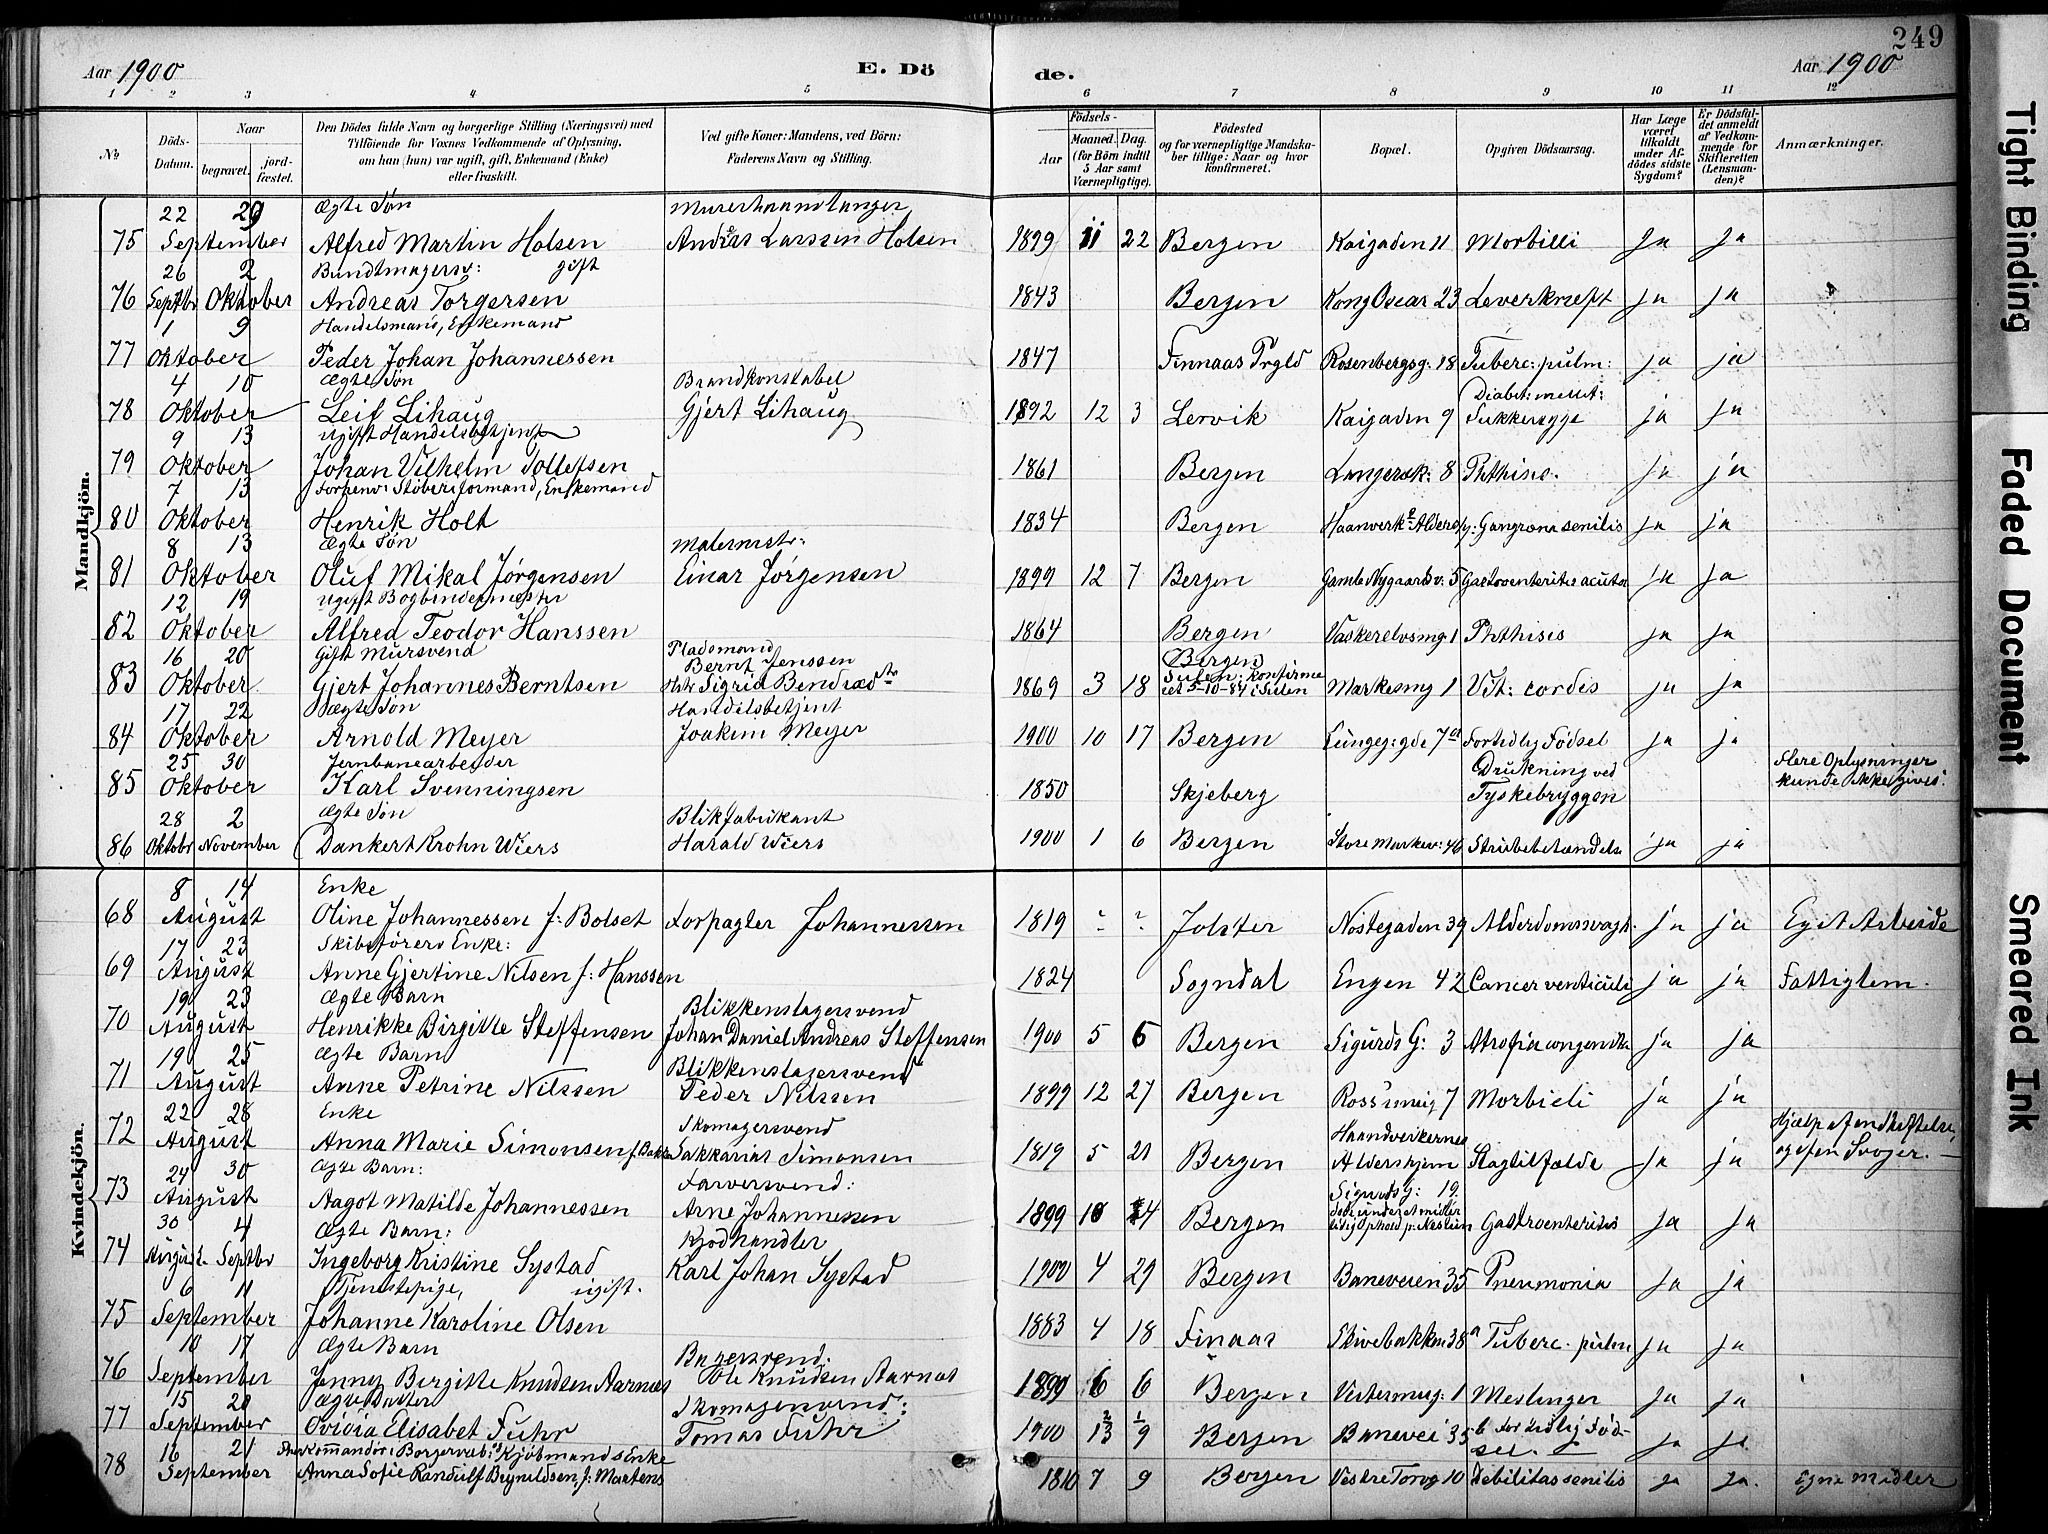 249
Aar 1900 E. Dö de. Aar 1900
1 2 3 4 5 6 7 8 9 10 11 12
No. Döds-Datum. Naar begravet. jord-fæstet. Den Dödes fulde Navn og borgerlige Stilling (Næringsvei) med Tilföiende for Voxnes Vedkommende af Oplysning, om han (hun) var ugift, gift, Enkemand (Enke) eller fraskilt. Ved gifte Koner: Mandens, ved Börn: Faderens Navn og Stilling. Födsels- Aar Maaned. Dag. (for Börn indtil 5 Aar samt Værnepligtige). Födested og for værnepligtige Mandskaber tillige: Naar og hvor konfirmeret. Bopæl. Opgiven Dödsaarsag. Har Læge været tilkaldt under Afdödes sidste Sygdom? Er Dödsfaldet anmeldt af Vedkommende for Skifteretten (Lensmanden)? Anmærkninger.
Mandkjön.
22 29 Ægte Søn Murerhaandlanger
75 September Alfred Martin Holsen Andreas Larssen Holsen 1899 11 22 Bergen Kaigaden 11 Morbilli Ja ja
26 2 Bundtmagersv: gift
76 Septbr Oktober Andreas Torgersen 1843 Bergen Kong Oscar 23 Leverkræft ja ja
1 9 Handelsmand, Enkemand
77 Oktober Peder Johan Johannessen 1847 Finnaas Prgld Rosenbergsg: 18 Tuberc: pulm: ja ja
4 10 Ægte Søn Brandkonstabel Diabet: mellit:
78 Oktober Leif Lihaug Gjert Lihaug 1892 12 3 Lervik Kaigaden 9 Sukkersyge ja ja
9 13 ugift Handelsbetjent
79 Oktober Johan Vilhelm Tollefsen 1861 Bergen Langersk: 8 Phthisis. ja ja
7 13 Forhenv: Støberiformand, Enkemand
80 Oktober Henrik Holt 1834 Bergen Haanverk: Alders hj: Gangræna senilis ja ja
8 13 Ægte Søn Malermstr:
81 Oktober Oluf Mikal Jørgensen Einar Jørgensen 1899 12 7 Bergen Gamle Nygaardsv: 5 Gastroenteritis acuta ja ja
12 19 ugift Bogbindermester
82 Oktober Alfred Teodor Hanssen 1864 Bergen Vaskerelvsmg 1 Phthisis ja ja
16 20 Gift Mursvend Pladsmand Bernt Jenssen Bergen
83 Oktober Gjert Johannes Berntsen Hstr Sigrid Bendixdtr 1869 3 18 Sulen: konfirme ret 5-10-84 i Sulen Markesmg 1 Vit: cordis ja ja
17 22 Ægte Søn Handelsbetjent
84 Oktober Arnold Meyer Joakim Meyer 1900 10 17 Bergen Lungeg: gde 7a Fortidlig Fødsel ja ja
25 30 Jernbanearbeider Drukning ved Flere Oplysninger
85 Oktober Karl Svenningsen 1850 Skjeberg Tyskebryggen kunde ikke gives.
28 2 Ægte Søn Blikfabrikant
86 Oktobr November Dankert Krohn Wiers Harald Wiers 1900 1 6 Bergen Store Markev: 46 Strubebetændelse ja ja
Kvindekjön.
8 14 Enke
68 August Oline Johannessen f: Bolset Forpagter Johannessen 1819 ? ? Jølster Nøstegaden 39 Alderdomssvagh. ja ja Eget Arbeide
17 23 Skibsførers Enke:
69 August Anne Gjertine Nilsen f: Hanssen 1824 Sogndal Engen 42 Cancer venticuli ja ja Fattiglem.
19 23 Ægte Barn Blikkenslagersvend
70 August Henrikke Birgitte Steffensen Johan Daniel Andreas Steffensen 1900 5 6 Bergen Sigurds G: 3 Atrofia congenita ja ja
19 25 Ægte Barn Blikkenslagersvend
71 August Anne Petrine Nilssen Peder Nilssen 1899 12 27 Bergen Rossmug 7 Morbili ja ja
22 28 Enke Skomagersvend Haandverkernes Hjælp af
72 August Anna Marie Simonsen f. Sakkarias Simonsen 1819 5 21 Bergen Aldershjem Slagtilfælde ja ja og af en Svoger.
24 30 Ægte Barn: Farversvend: Sigurds G: 19.
73 August Aagot Matilde Johannessen Arne Johannessen 1899 10 14 Bergen død under et midler tidig Ophold p. Nesttun Gastroenteritis ja ja
30 4 Ægte Barn: Kjødhandler
74 August Septbr Ingeborg Kristine Systad Karl Johan Systad 1900 4 29 Bergen Baneveien 35 Pneumonia ja ja
6 11 Tjenestepige, ugift.
75 September Johanne Karoline Olsen 1883 4 18 Finaas Skivebakken 38a Tuberc. pulm ja ja
10 17 Ægte Barn Bagersvend:
76 September Jenny Bergitte Knudsen Aarnæs Ole Knudsen Aarnæs 1899 6 6 Bergen Vestermug: 1 Meslinger ja ja
15 20 Ægte Datter Skomagersvend:
77 September Ovidia Elisabet Fuhr Tomas Fuhr 1900 9 Bergen Banevei 35 b For tidlig Fødsel. ja ja
16 21 Kommandør i Borgervæb: og Kjøbmands Enke
78 September Anna Sofie Randulf Brynildsen f: Martens 1810 7 9 Bergen Vestre Torvg 10 Debilitas senilis ja ja. Egne Midler
Tight Binding
Faded Document
Smeared Ink